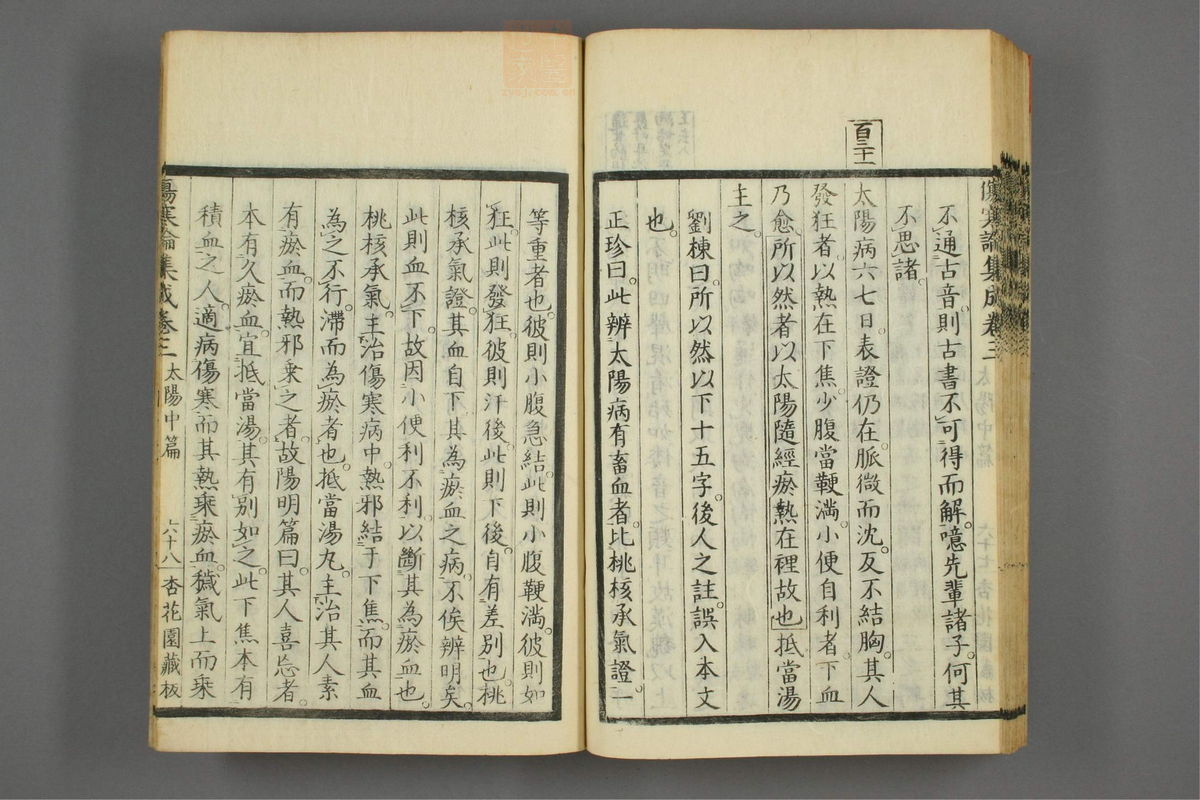 傷寒論集成卷三
不通古音則古書不可得而解噫先輩諸子何其
不思諸
百三十一
太陽病六七日表證仍在脈微而沈反不結胸其人
發狂者以熱在下焦少腹當鞕滿小便自利者下血
乃愈所以然者以太陽隨經瘀熱在裡故也抵當湯
主之
劉棟曰所以然以下十五字後人之註誤入本文
也
正珍曰此辨太陽病有畜血者比桃核承氣證一
等重者也彼則小腹急結此則小腹鞕滿彼則如
狂此則發狂彼則汗後此則下後自有差別也桃
核承氣證其血自下其為瘀血之病不俟辨明矣
此則血不下故因小便利不利以斷其為瘀血也
桃核承氣主治傷寒病中熱邪結于下焦而其血
為之不行滯而為瘀者也抵當湯丸主治其人素
有瘀血而熱邪乘之者故陽明篇曰其人喜忘者
本有久瘀血宜抵當湯其有別如之此下焦本有
積血之人適病傷寒而其熱乘瘀血穢氣上而乘
傷寒論集成卷三 太陽中篇 六十八 杏花園藏板